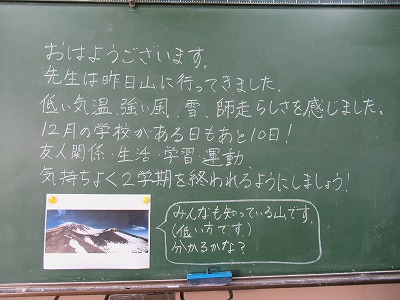 おはようございます。
先生は昨日山に行ってきました。
低い気温、強い風、雪、師走らしさを感じました。
12月の学校がある日もあと10日!
友人関係・生活・学習・運動、
気持ちよく2学期を終われるようにしましょう!
みんなも知っている山です。
(低い方です)
分かるかな?